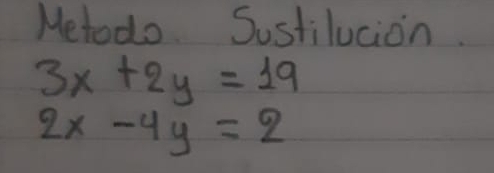 Metodo. Sustilución.
3x +2y = 19
2x -4y = 2